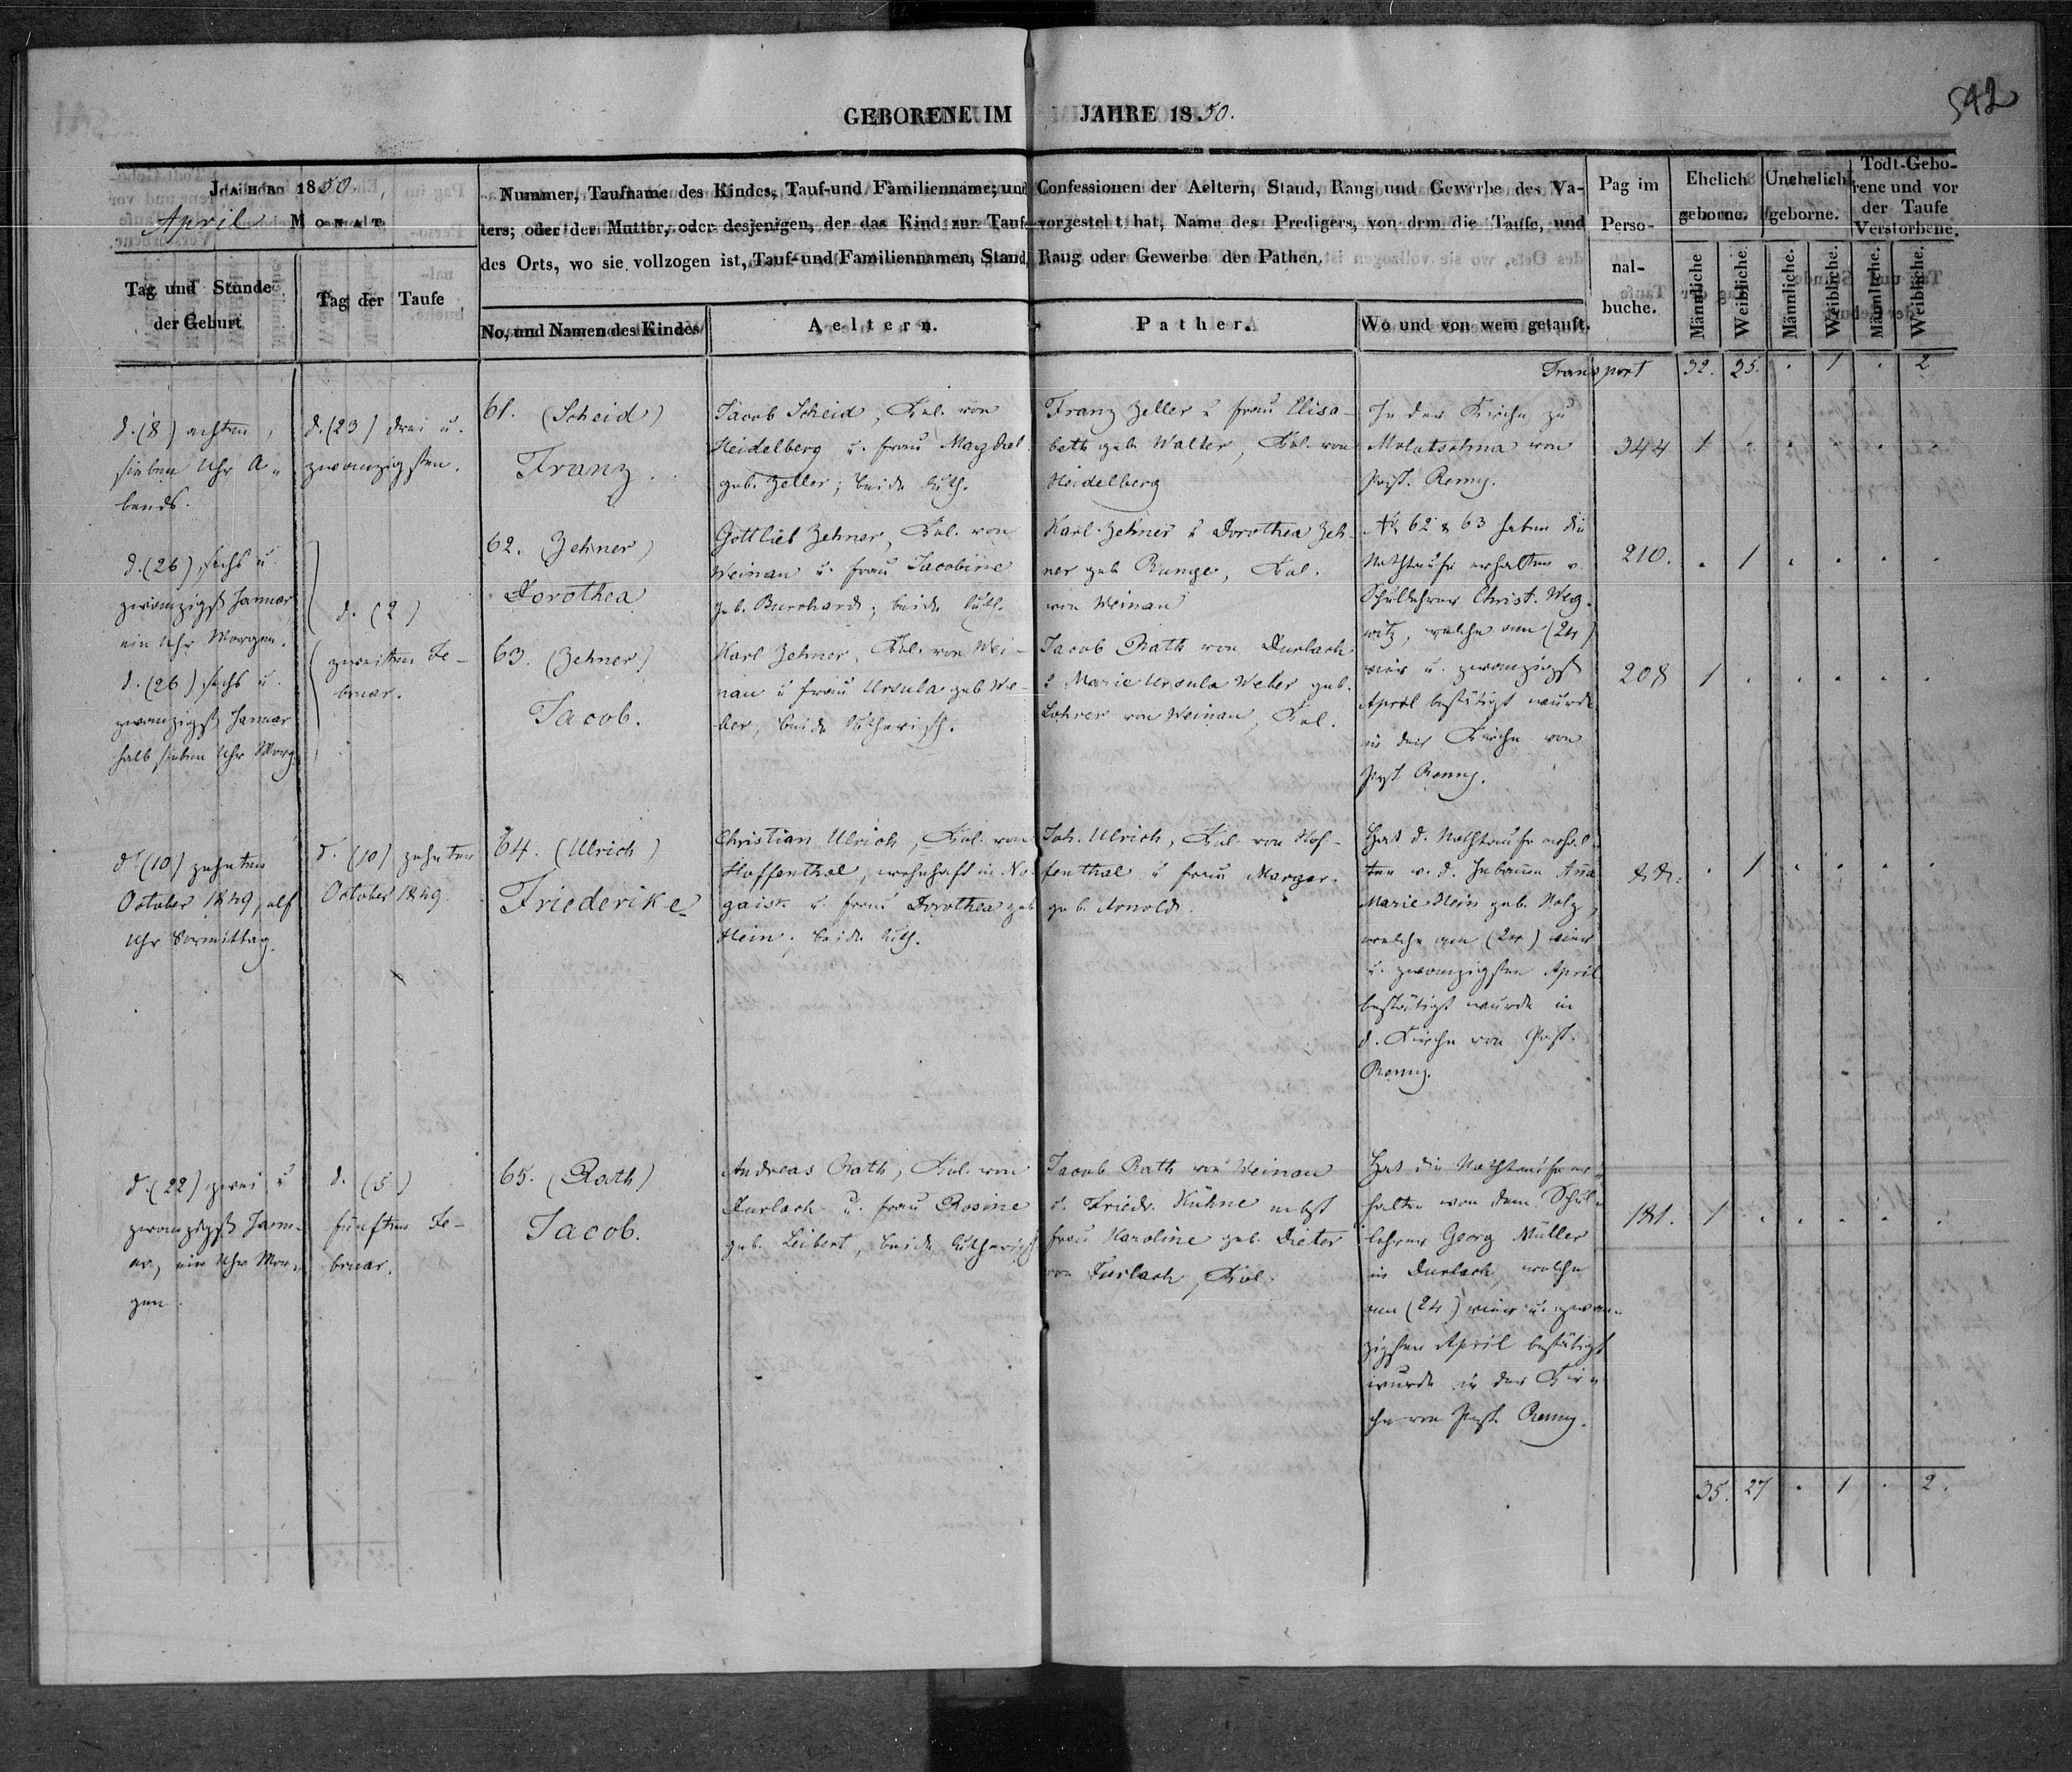 542
GEBORENE IM JAHRE 1850.
JAHR 1850.
April MONAT
Tag und Stunde
der Geburt
Tag der Taufe
Nummer, Taufname des Kindes, Tauf-und Familienname, und Confessionen der Aeltern, Stand, Rang und Gewerbe des Va-
ters; oder der Mutter, oder desjenigen, der das Kind zur Taufe vorgestellt hat, Name des Predigers, von dem die Taufe, und
des Orts, wo sie vollzogen ist, Tauf-und Familiennamen, Stand, Rang oder Gewerbe der Pathen.
No, und Namen des Kindes
Aeltern.
Pather.
Wo und von wem getauft.
Pag im
Perso-
nal-
buche.
Ehelich
geborne.
Unehelich
geborne.
Todt-Gebo-
rene und vor
der Taufe
Verstorbene.
Männliche
Weibliche.
Männliche.
Weibliche.
Männliche.
Weibliche.
Transport 32. 25. . 1 . 2
d. (8) achten,
sieben Uhr A-
bends.
d. (23) drei u.
zwanzigsten.
61. (Scheid)
Franz.
Jacob Scheid, Kol. von
Heidelberg u. Frau Magdal.
geb. Zeller; beide luth.
Franz Zeller u Frau Elisa-
beth geb. Walter, Kol. von
Heidelberg
In der Kirche zu
Molotschna von
Past. Remy.
344 1 . . . . .
d. (26) sechs u.
zwanzigst Januar,
ein Uhr Morgen.
d. (2)
zweiten Fe-
bruar.
62. (Zehner)
Dorothea
Gottlieb Zehner, Kol. von
Weinau u. Frau Jacobine
geb. Burrhard; beide luth.
Karl Zehner u Dorothea Zeh-
ner geb. Runge, Kol.
von Weinau
No 62 & 63 haben die
Nothtaufe erhalten v.
Schullehrer Christ. Weg-
witz, welche am (24)
vier u. zwanzigst
April bestätigt wurde
in der Kirche von
Past. Remy.
210. . 1 . . . .
d. (26) sechs u.
zwanzigst Januar
halb sieben Uhr Morg.
63. (Zehner)
Jacob.
Karl Zehner, Kol. von Wei-
nau u Frau Ursula geb We-
ber, beide lutherisch.
Jacob Rath von Durlach
u Marie Ursula Weber geb.
Lohrer von Weinau, Kol.
208 1 . . . . .
d. (10) zehnten
October 1849, elf
Uhr Vormittag.
d. (10) zehnten
October 1849.
64. (Ulrich)
Friederike
Christian Ulrich, Kol. von
Hoffenthal, wohnhaft in No-
gaisk u. Frau Dorothea geb
Hein. beide luth.
Joh. Ulrich, Kol. von Hof-
fenthal u Frau Margar.
geb. Arnold.
Hat d. Nothtaufe erhal-
ten v. d. Hebamme Anna
Marie Hein geb. Holz,
welche am (24) vier
u. zwanzigsten April
bestätigt wurde in
d. Kirche von Past.
Remy.
. 1 . . . .
d. (22) zwei u
zwanzigst Janu-
ar, ein Uhr Mor-
gen.
d. (5)
fünften Fe-
bruar.
65. (Rath)
Jacob.
Andreas Rath, Kol. von
Durlach u. Frau Rosine
geb. Leibert, beide lutherisch
Jacob Rath von Weinau
u. Friedr. Kühne nebst
Frau Karoline geb. Dieter
von Durlach, Kol.
Hat die Nothtaufe er-
halten von dem Schul-
lehrer Georg Müller
in Durlach, welche
am (24) vier u. zwan-
zigsten April bestätigt
wurde in der Kir-
che von Past. Remy.
181. 1 . . . . .
35. 27 . 1 . 2.